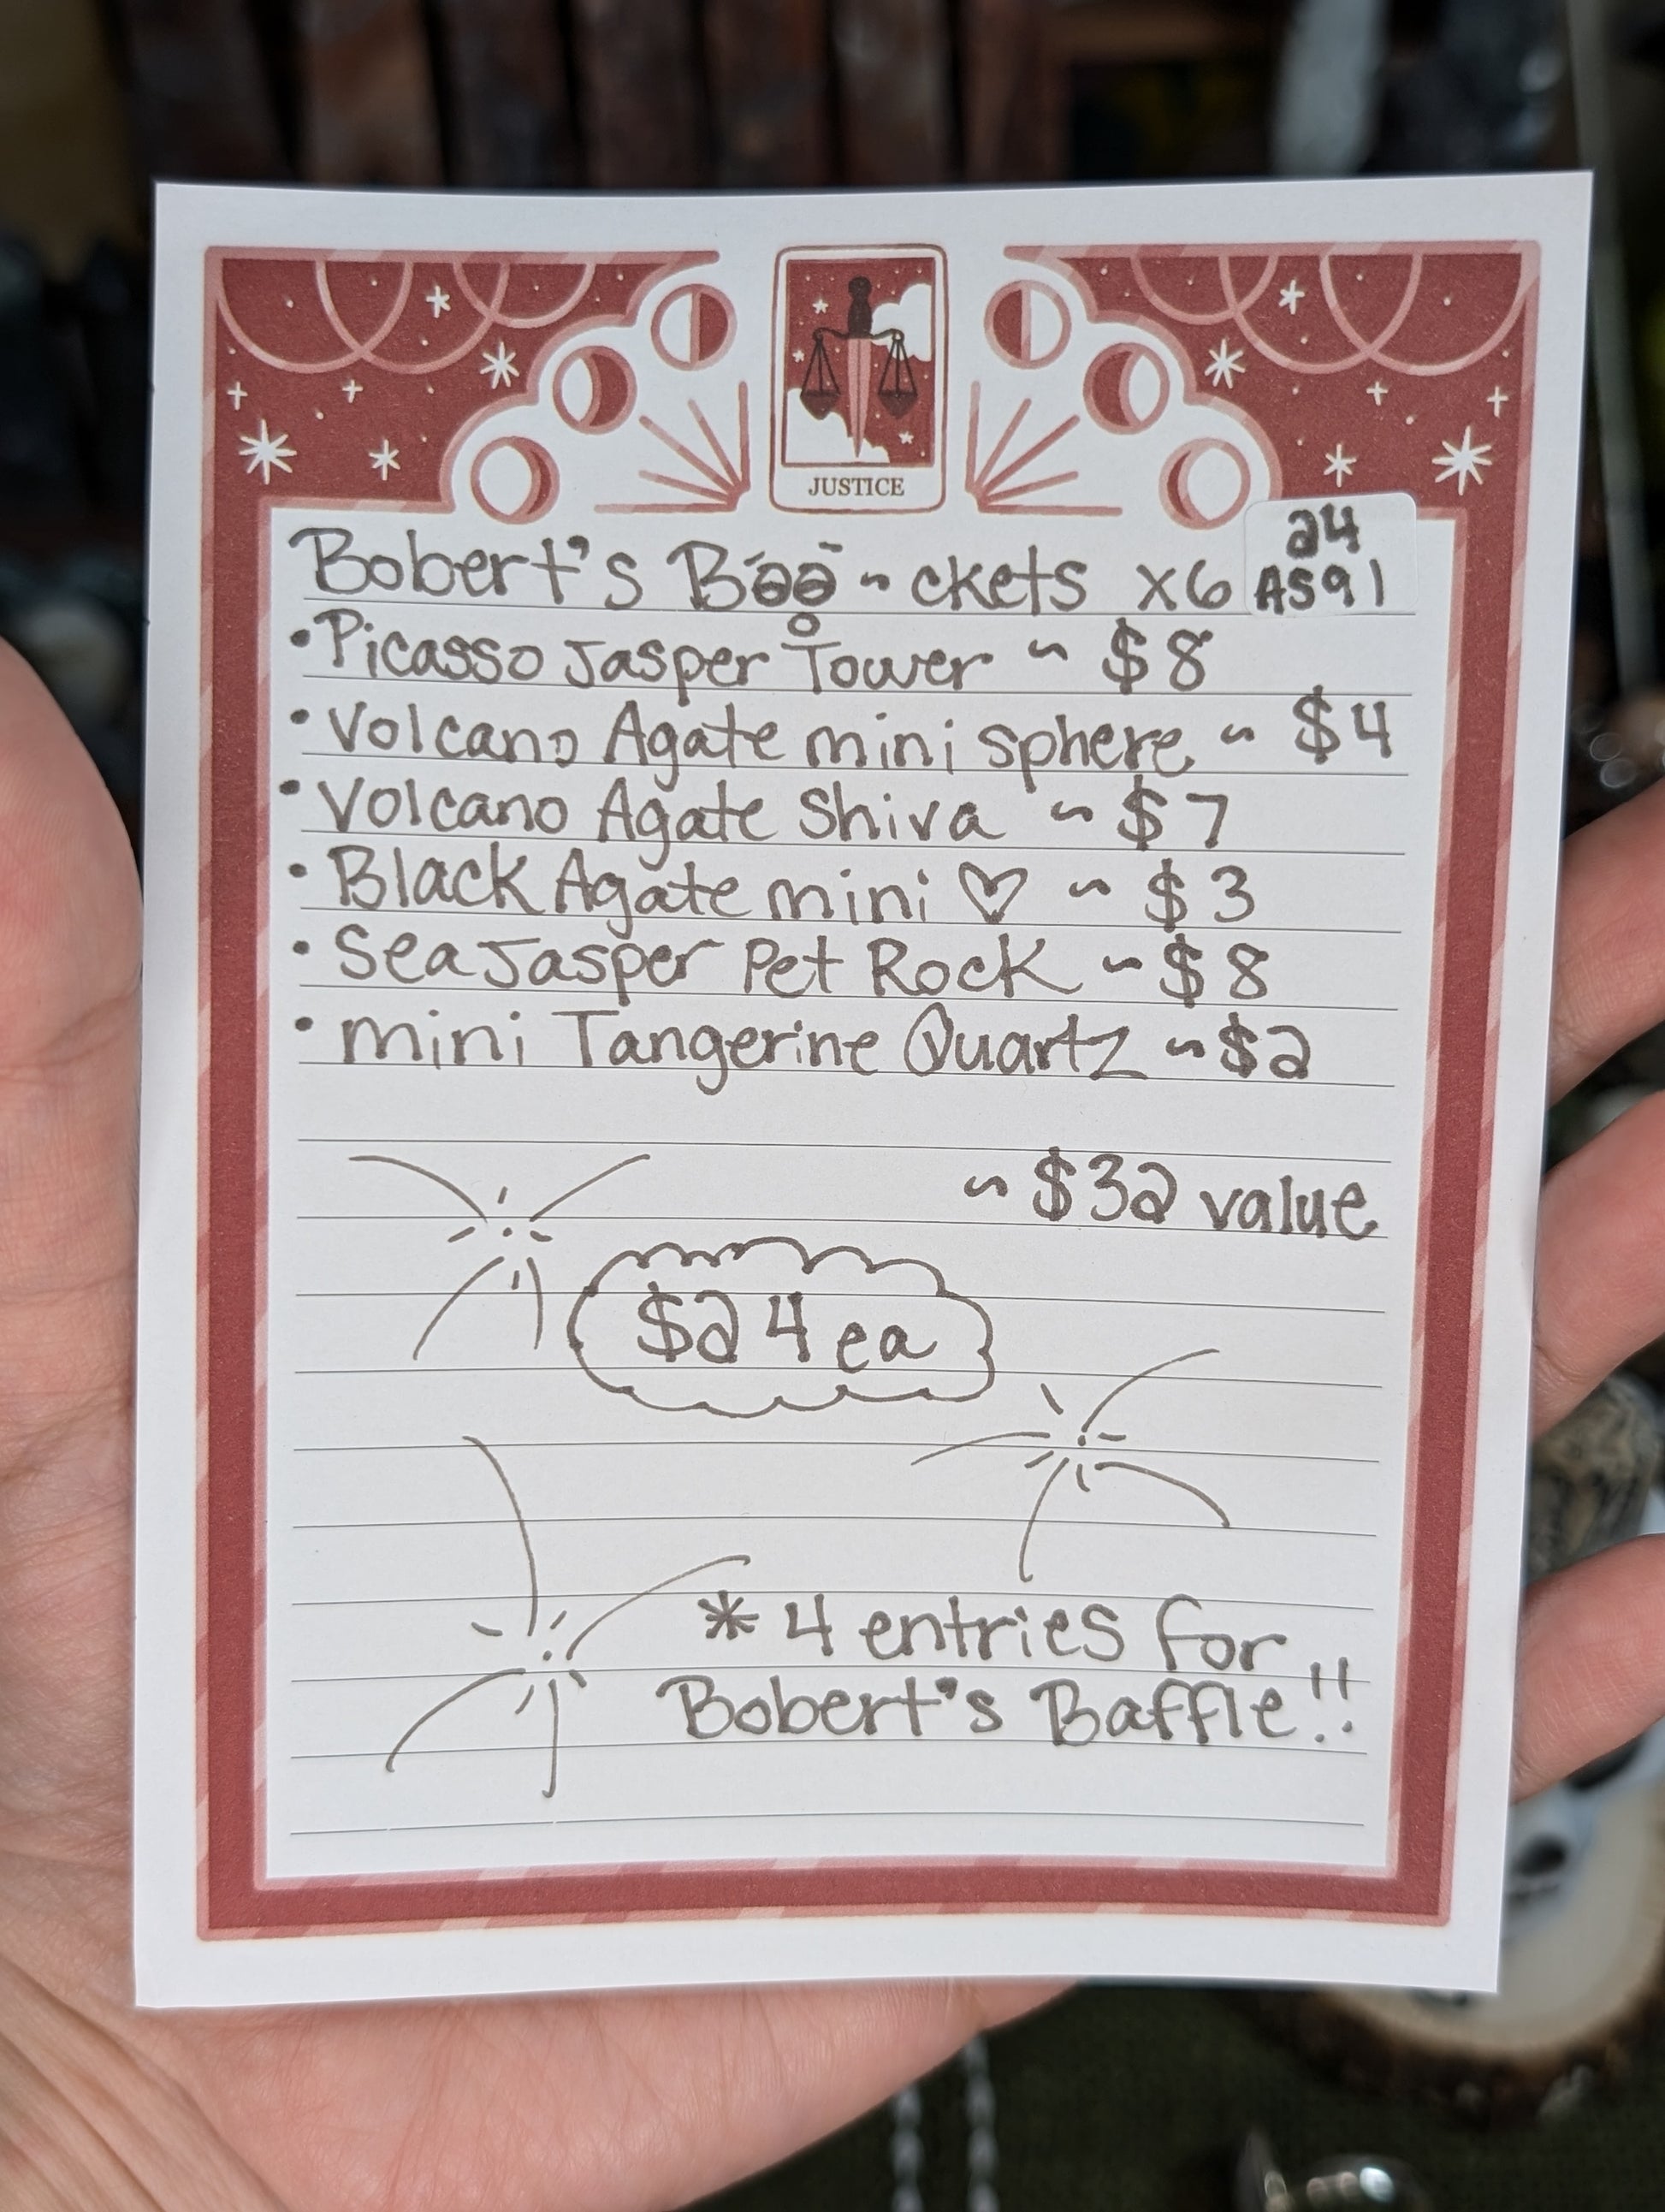 JUSTICE
24
AS91
Bobert's Boo~ckets x6
• Picasso Jasper Tower ~ $8
• Volcano Agate mini sphere ~ $4
• Volcano Agate Shiva ~ $7
• Black Agate mini ♡ ~ $3
• Sea Jasper Pet Rock ~ $8
• mini Tangerine Quartz ~ $2
~ $32 value
$24 ea
* 4 entries for
Bobert's Baffle!!